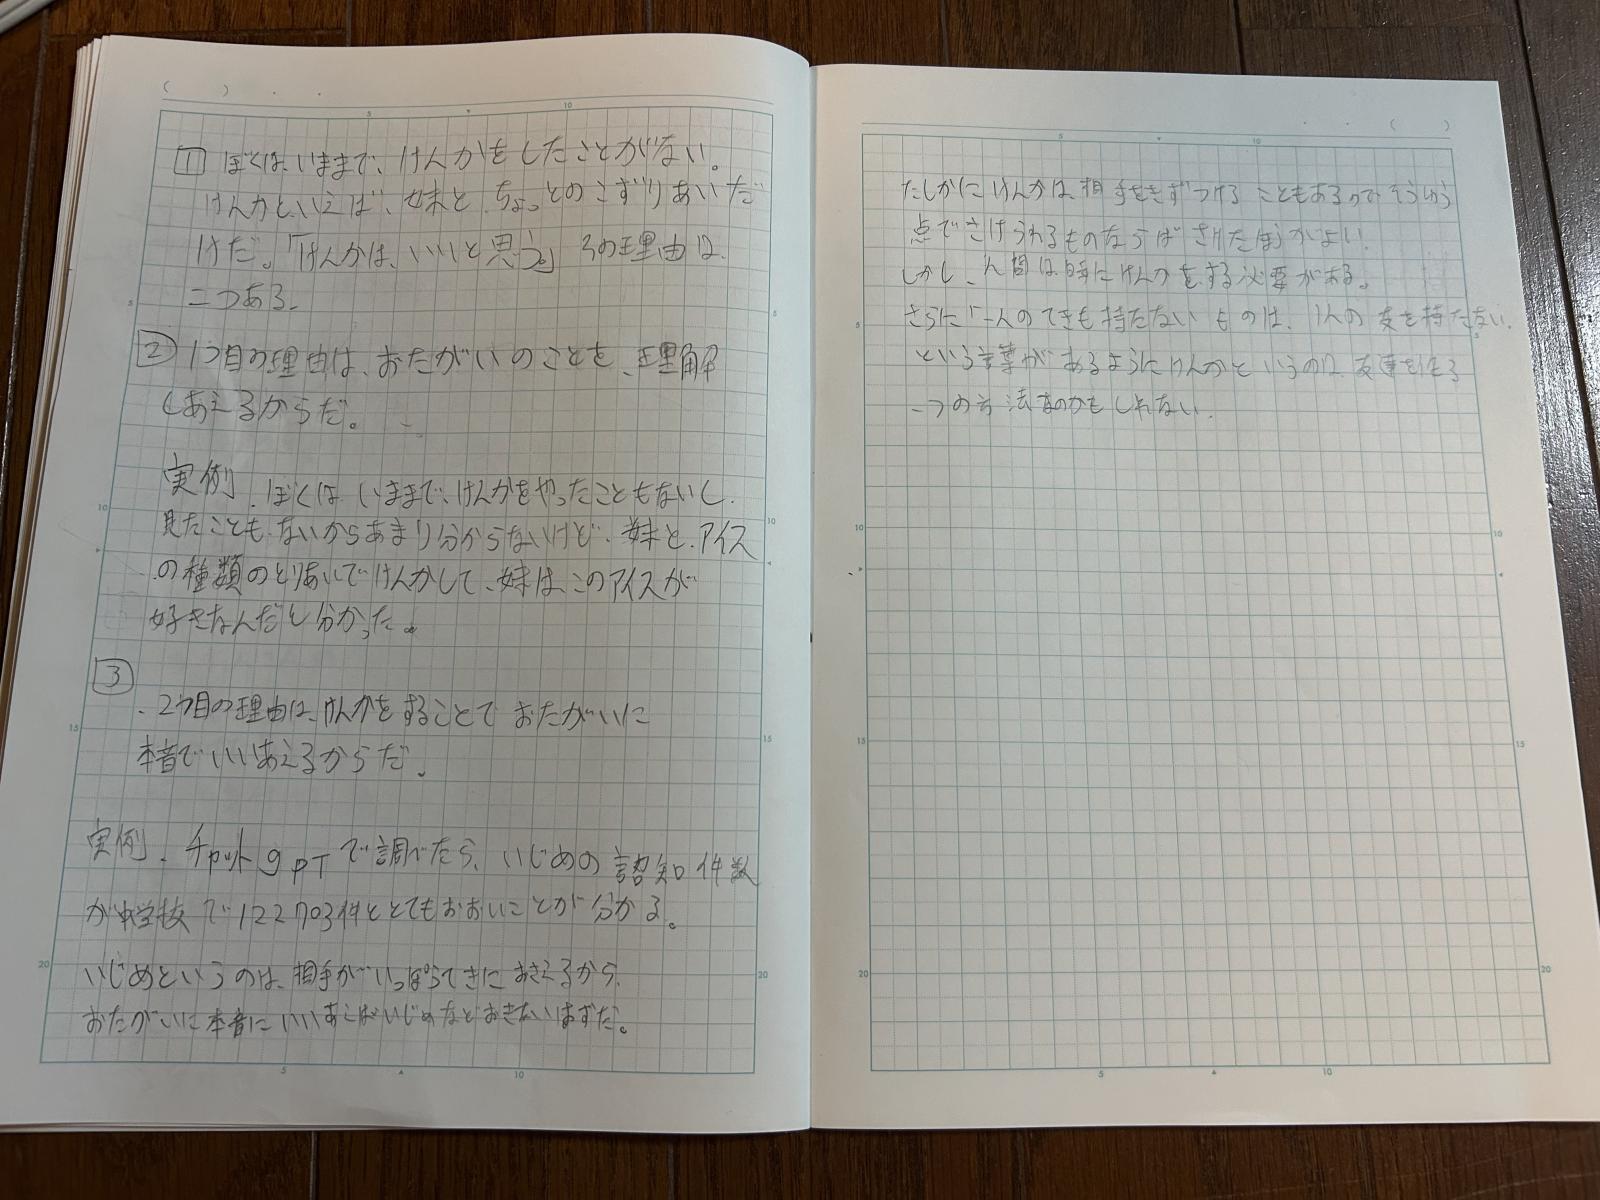 1 ぼくは、いままで、けんかをしたことがない。
けんかといえば、妹と、ちょっとのこずりあいだ
けだ。「けんかは、いいと思う。」その理由は、
二つある。
2 1つ目の理由は、おたがいのことを、理解
しあえるからだ。
実例、ぼくは、いままで、けんかをやったこともないし、
見たことも、ないからあまり分からないけど、妹と、アイス
の種類のとりあいでけんかして、妹は、このアイスが
好きなんだと分かった。
3
2つ目の理由は、けんかをすることでおたがいに
本音でいいあえるからだ。
実例、チャットgPTで調べたら、いじめの認知件数
が中学校で122703件ととてもおおいことが分かる。
いじめというのは、相手がいっぽうてきにおさえるから、
おたがいに本音にいいあえばいじめなどおきないはずだ。
たしかにけんかは、相手をきずつけることもあるのでそうゆう
点でさけられるものならばさけたほうがよい。
しかし、人間は時にけんかをする必要がある。
さらに「一人のてきも持たないものは、1人の友も持たない、
という言葉があるようにけんかというのは、友達を作る
一つの方法なのかもしれない。
5
10
5
10
15
20
10
15
20
5
10
5
10
5
10
15
20
5
10
15
20
5
10